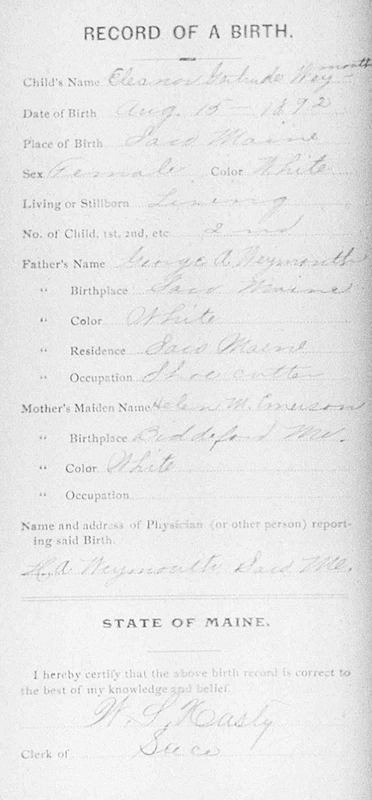 RECORD OF A BIRTH.
Child's Name Eleanor Gertrude Weymouth
Date of Birth Aug. 15 - 1892
Place of Birth Saco Maine
Sex Female Color White
Living or Stillborn Living
No. of Child, 1st, 2nd, etc 2nd
Father's Name George A. Weymouth
" Birthplace Saco Maine
" Color White
" Residence Saco Maine
" Occupation Shoe cutter
Mother's Maiden Name Helen M. Emerson
" Birthplace Biddeford Me.
" Color White
" Occupation
Name and address of Physician (or other person) report-
ing said Birth.
H. A. Weymouth Saco Me.
STATE OF MAINE.
I hereby certify that the above birth record is correct to
the best of my knowledge and belief.
W. S. Hasty
Clerk of Saco